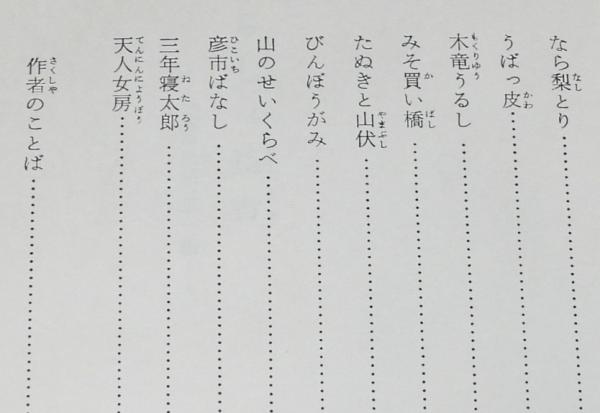 なら梨とり
うばっ皮
木竜うるし
みそ買い橋
たぬきと山伏
びんぼうがみ
山のせいくらべ
彦市ばなし
三年寝太郎
天人女房
作者のことば